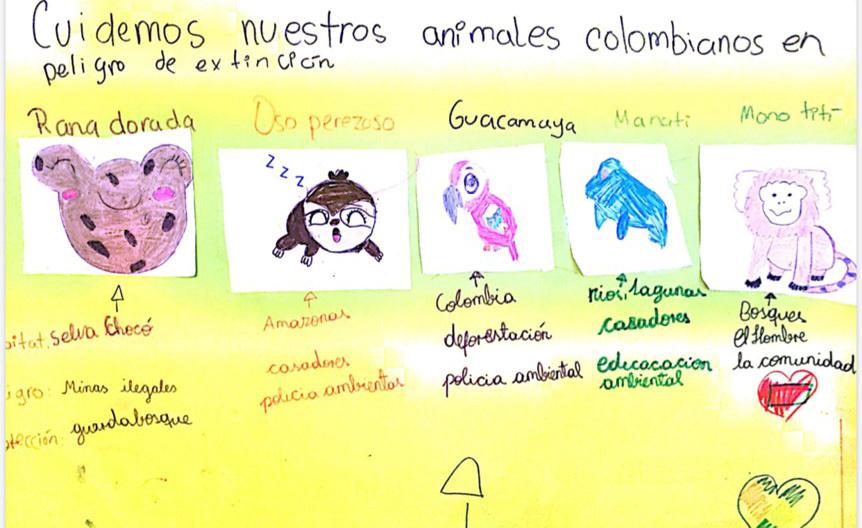 Cuidemos nuestros animales colombianos en
peligro de extinción
Rana dorada
Oso perezoso
Guacamaya
Manati
Mono titi
z z z
itat: selva Chocó
igro: Minas ilegales
tección: guardabosque
Amazonas
casadores
policia ambiental
Colombia
deforestación
policia ambiental
rios, lagunas
casadores
edicacacion
ambiental
Bosques
el Hombre
la comunidad